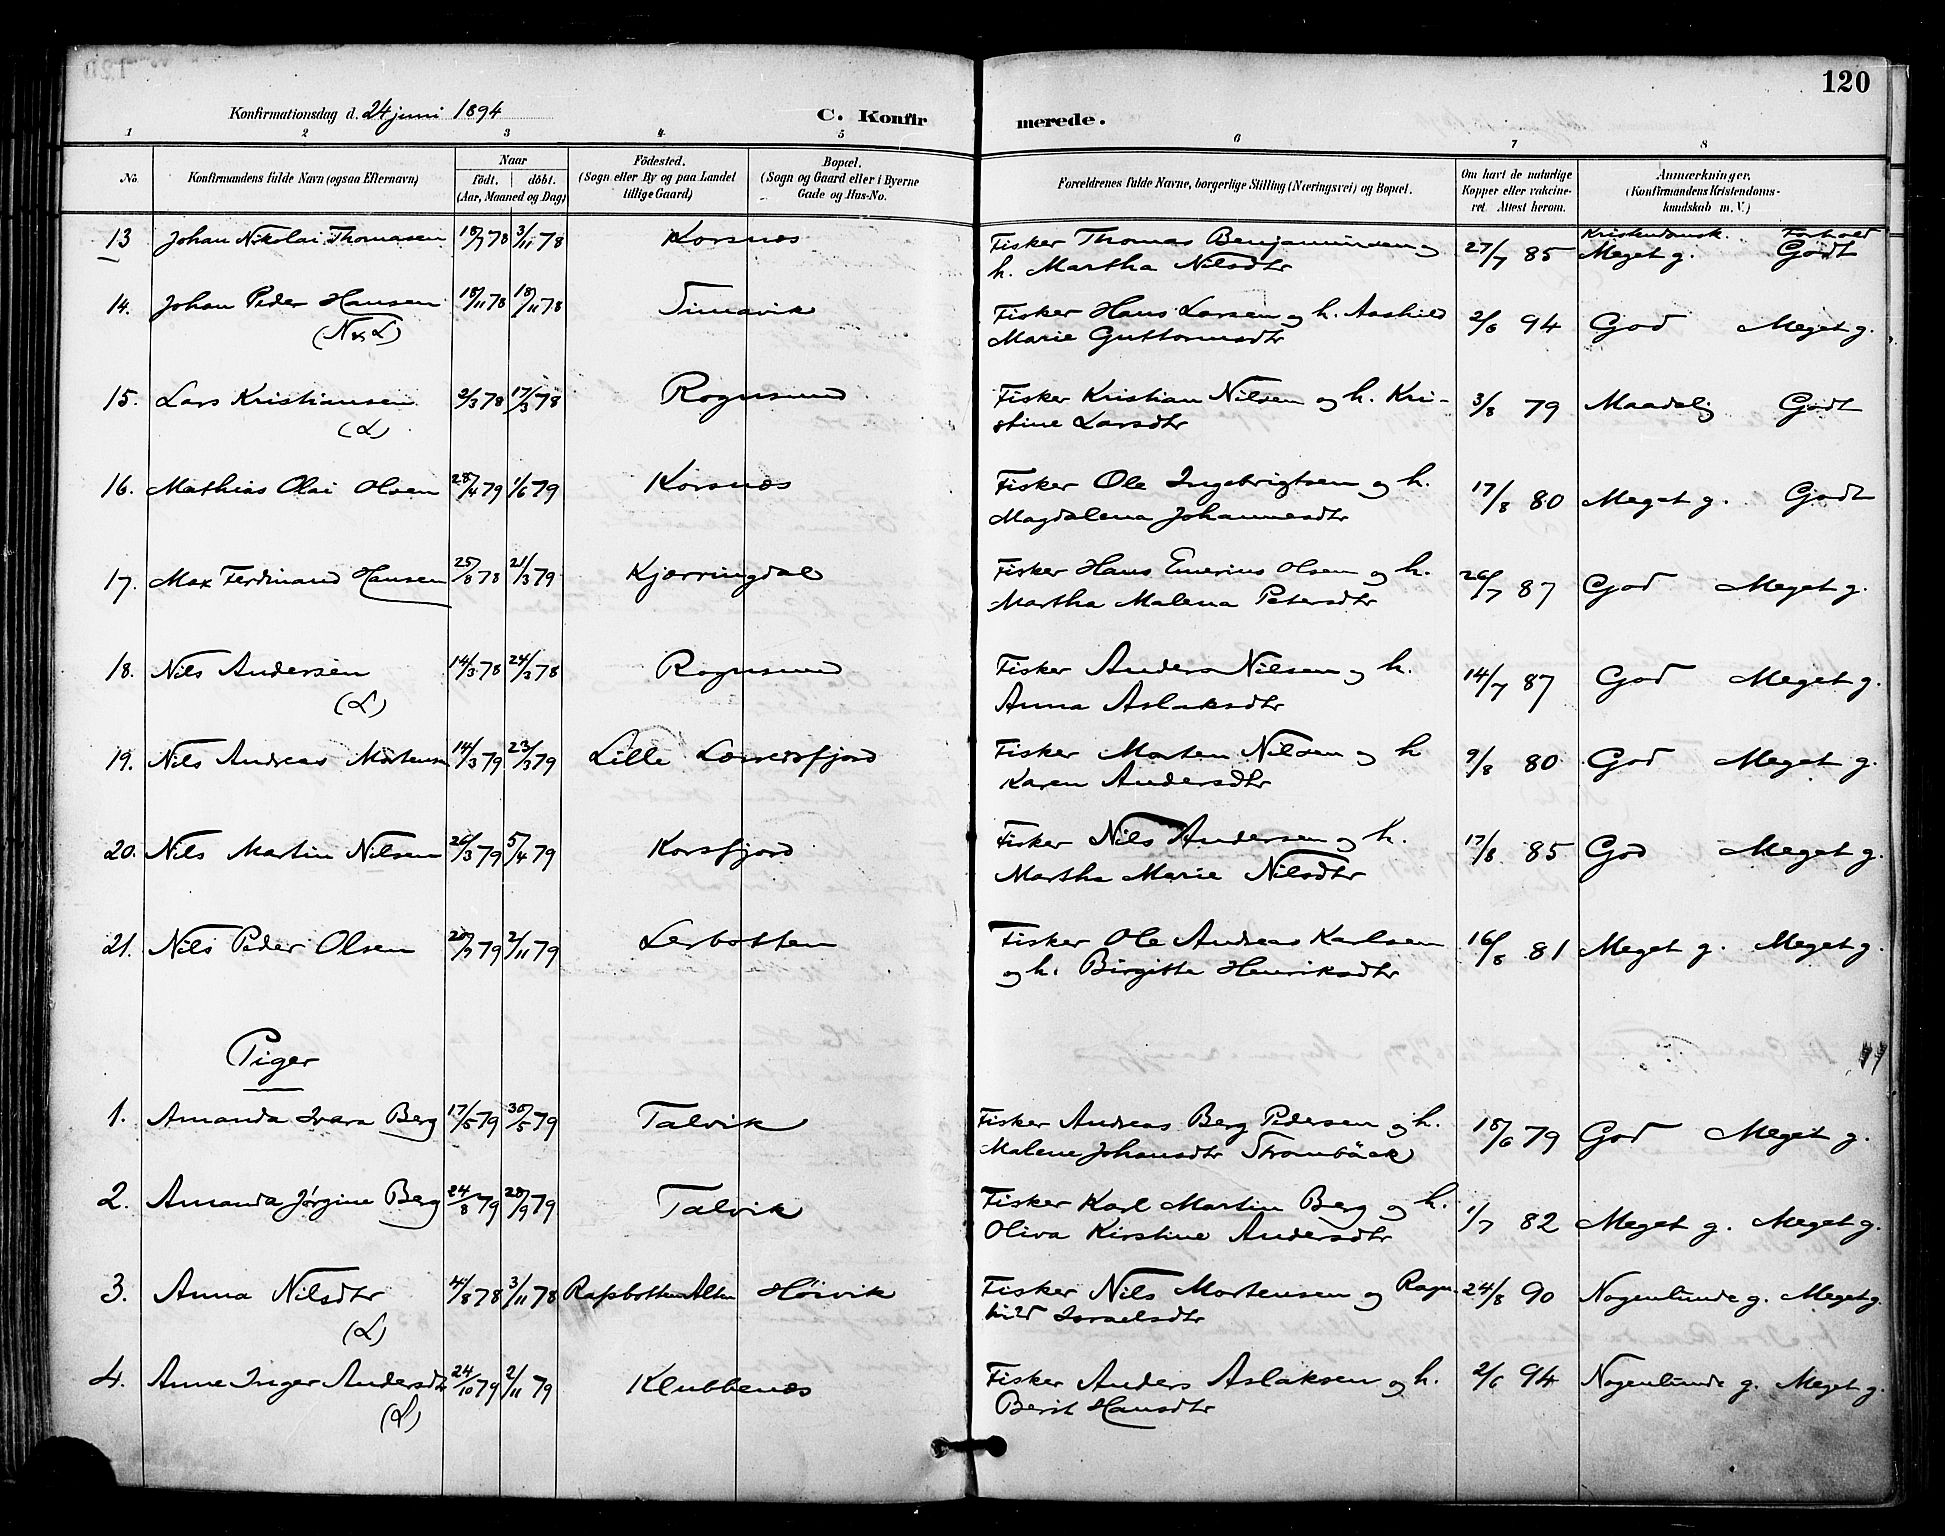 120
Konfirmationsdag d. 24 juni 1894
C. Konfir merede.
1 2 3 4 5 6 7 8
No.
Konfirmandens fulde Navn (ogsaa Efternavn)
Naar
födt. | döbt.
(Aar, Maaned og Dag)
Födested.
(Sogn eller By og paa Landet
tillige Gaard)
Bopæl.
(Sogn og Gaard eller i Byerne
Gade og Hus-No.
Forældrenes fulde Navne, borgerlige Stilling (Næringsvei) og Bopæl.
Om havt de naturlige
Kopper eller vakcine-
ret. Attest herom.
Anmærkninger.
(Konfirmandens Kristendoms-
kundskab m. V.)
Kristendomsk. Forhold
13 Johan Nikolai Thomasen 18/7 78 3/11 78 Korsnæs Fisker Thomas Benjaminsen og 27/7 85 Meget g. Godt
h. Martha Nilsdtr
14. Johan Peder Hansen 18/11 78 Simavik Fisker Hans Larsen og h. Aashild 2/6 94 God Meget g.
Marie Guttormsdtr
15. Lars Kristiansen 2/3 78 17/3 78 Rognsund Fisker Kristian Nilsen og h. Kri- 3/8 79 Maadelig Godt
(L) stine Larsdtr
16. Mathias Olai Olsen 28/4 79 1/6 79 Korsnæs Fisker Ole Ingebrigtsen og h. 17/8 80 Meget g. Godt
Magdalena Johannesdtr
17. Max Ferdinand Hansen 25/8 78 21/3 79 Kjerringdal Fisker Hans Emerius Olsen og h. 26/7 87 God Meget g.
Martha Malena Petersdtr
18. Nils Andersen 14/3 78 24/3 78 Rognsund Fisker Anders Nilsen og h. 14/7 87 God Meget g.
(L) Anna Aslaksdtr
19. Nils Andreas Mortensen 14/3 79 23/3 79 Lille Lerredsfjord Fisker Morten Nilsen og h 9/8 80 God Meget g.
Karen Andersdtr
20. Nils Martin Nilsen 26/3 79 5/4 79 Korsfjord Fisker Nils Andersen og h. 17/8 85 God Meget g.
Martha Marie Nilsdtr
21. Nils Peder Olsen 79 2/11 79 Lerbotten Fisker Ole Andreas Karlsen 16/8 81 Meget g. Meget g.
og h. Birgitta Henriksdtr
Piger
1. Amanda Ivara Berg 17/5 79 30/5 79 Talvik Fisker Andreas Berg Pedersen og h. 18/6 79 God Meget g.
Malene Johansdtr Strombäck
2. Amanda Jørgine Berg 24/8 79 28/9 79 Talvik Fisker Karl Martin Berg og h. 1/7 82 Meget g. Meget g.
Oliva Kirstine Andersdtr
3. Anna Nilsdtr 8 78 3/11 78 Rafsbotten Alten Høivik Fisker Nils Mortensen og Ragn- 24/8 90 Nogenlunde g. Meget g.
(L) hild Israelsdtr
4. Anne Inger Andersdtr 24/10 79 2/11 79 Klubbenæs Fisker Anders Aslaksen og h. 2/6 94 Nogenlunde g. Meget g.
(L) Berit Hansdtr